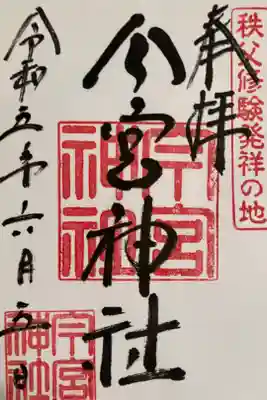 秩父修験発祥の地
奉拝
今宮神社
今宮神社
令和五年六月五日
今宮神社